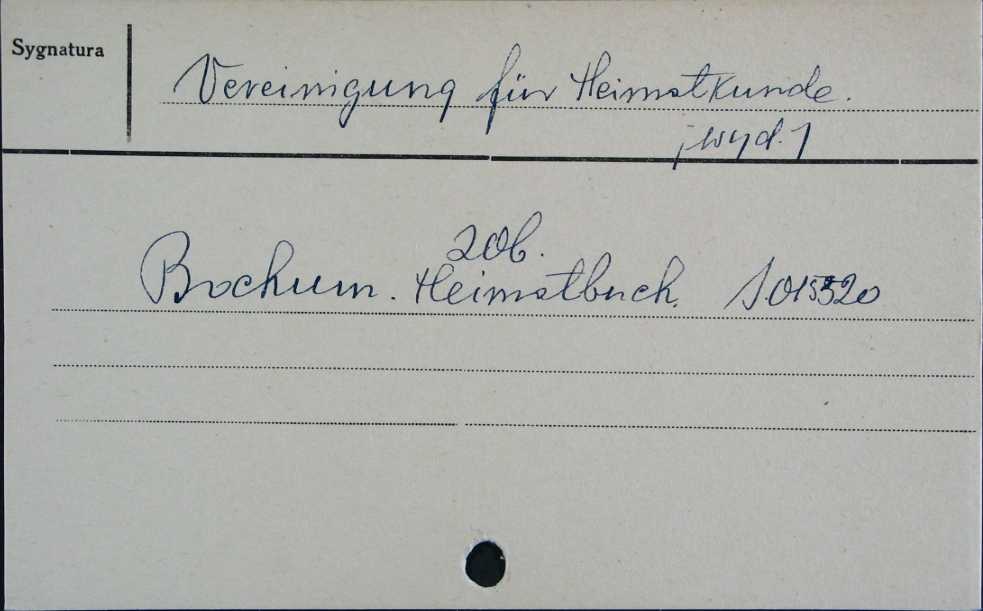 Sygnatura
Vereinigung für Heimatkunde.
/wyd./
zob.
Bochum. Heimatbuch.